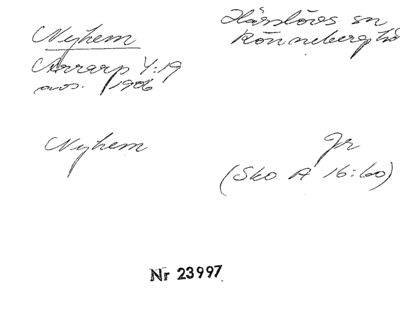 Nyhem
Härslövs sn
Rönnebergs hd
Annarp 4:19
avs. 1906
Nyhem
Jr
(Sko A 16:60)
Nr 23997